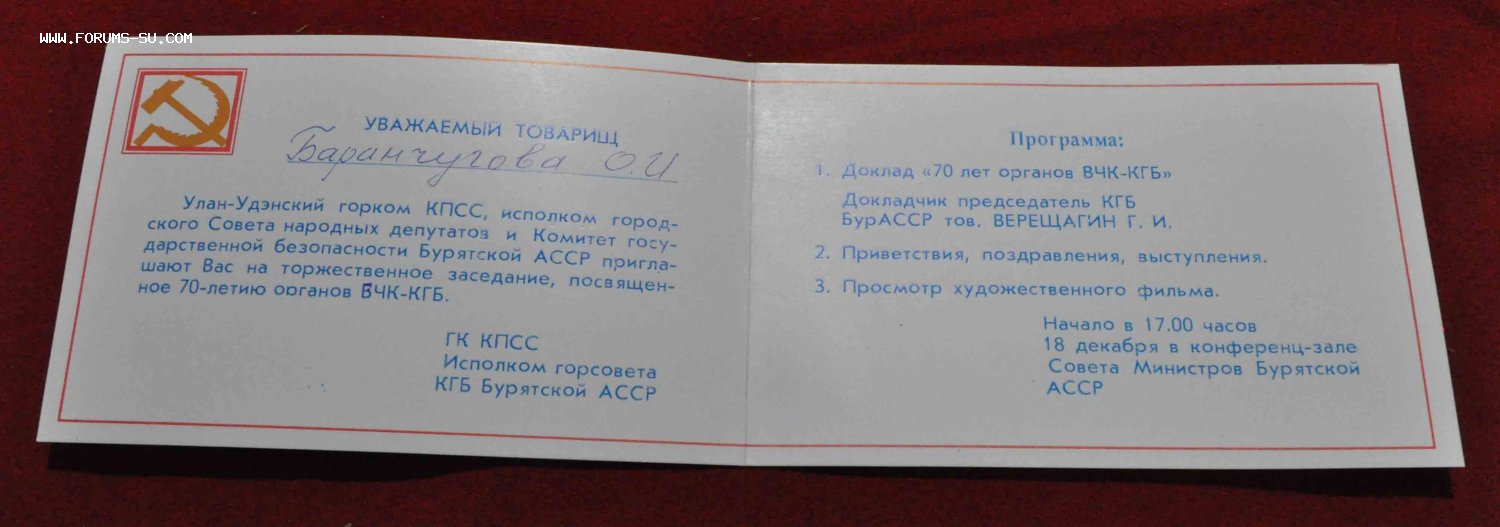 WWW.FORUMS-SU.COM
УВАЖАЕМЫЙ ТОВАРИЩ
Баранчугова О.И
Улан-Удэнский горком КПСС, исполком город-
ского Совета народных депутатов и Комитет госу-
дарственной безопасности Бурятской АССР пригла-
шают Вас на торжественное заседание, посвящен-
ное 70-летию органов ВЧК-КГБ.
ГК КПСС
Исполком горсовета
КГБ Бурятской АССР
Программа:
1. Доклад «70 лет органов ВЧК-КГБ»
Докладчик председатель КГБ
БурАССР тов. ВЕРЕЩАГИН Г. И.
2. Приветствия, поздравления, выступления.
3. Просмотр художественного фильма.
Начало в 17.00 часов
18 декабря в конференц-зале
Совета Министров Бурятской
АССР